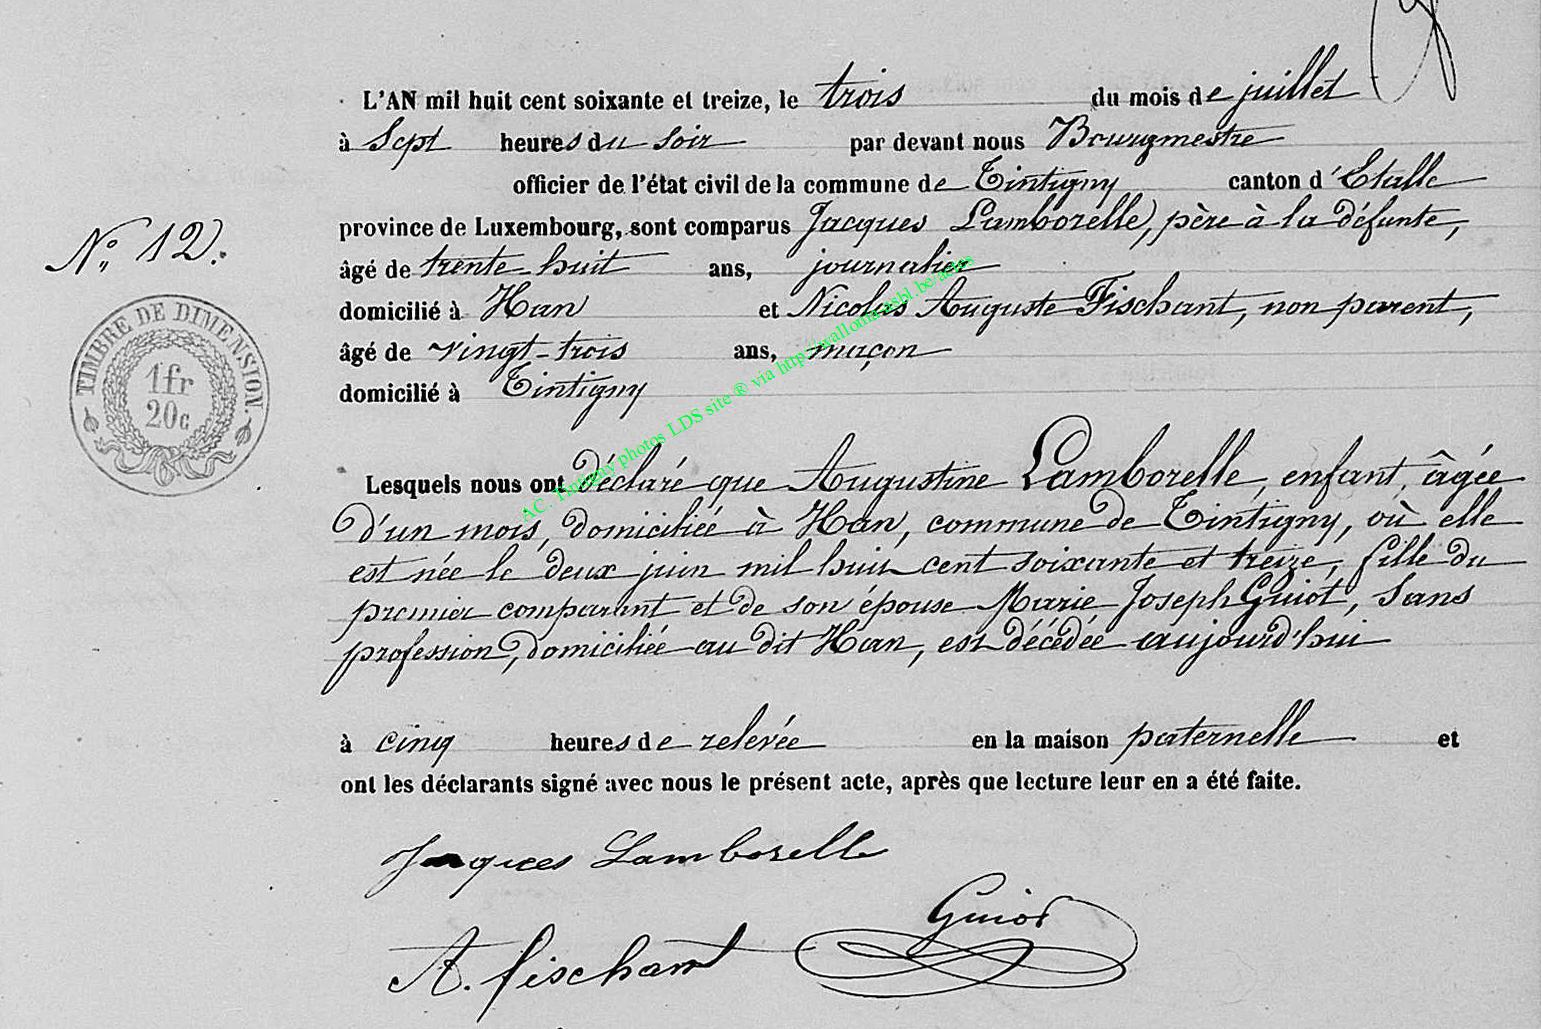 L'AN mil huit cent soixante et treize, le trois du mois de juillet
à Sept heures du soir par devant nous Bourgmestre
officier de l'état civil de la commune de Tintigny canton d'Etalle
N° 12.
province de Luxembourg, sont comparus Jacques Lamborelle, père à la défunte,
âgé de trente-huit ans, journalier
domicilié à Han et Nicolas Auguste Fischant, non parent,
âgé de vingt-trois ans, maçon
domicilié à Tintigny
TIMBRE DE DIMENSION.
1fr
20c
AC. Tintigny photos LDS site ® via http://wallonia.asbl.be/actes
Lesquels nous ont déclaré que Augustine Lamborelle, enfant, âgée
d'un mois, domiciliée à Han, commune de Tintigny, où elle
est née le deux juin mil huit cent soixante et treize, fille du
premier comparant et de son épouse Marie Joseph Guiot, sans
profession, domiciliée au dit Han, est décédée aujourd'hui
à cinq heures de relevée en la maison paternelle et
ont les déclarants signé avec nous le présent acte, après que lecture leur en a été faite.
Jacques Lamborelle
Guiot
A. fischant